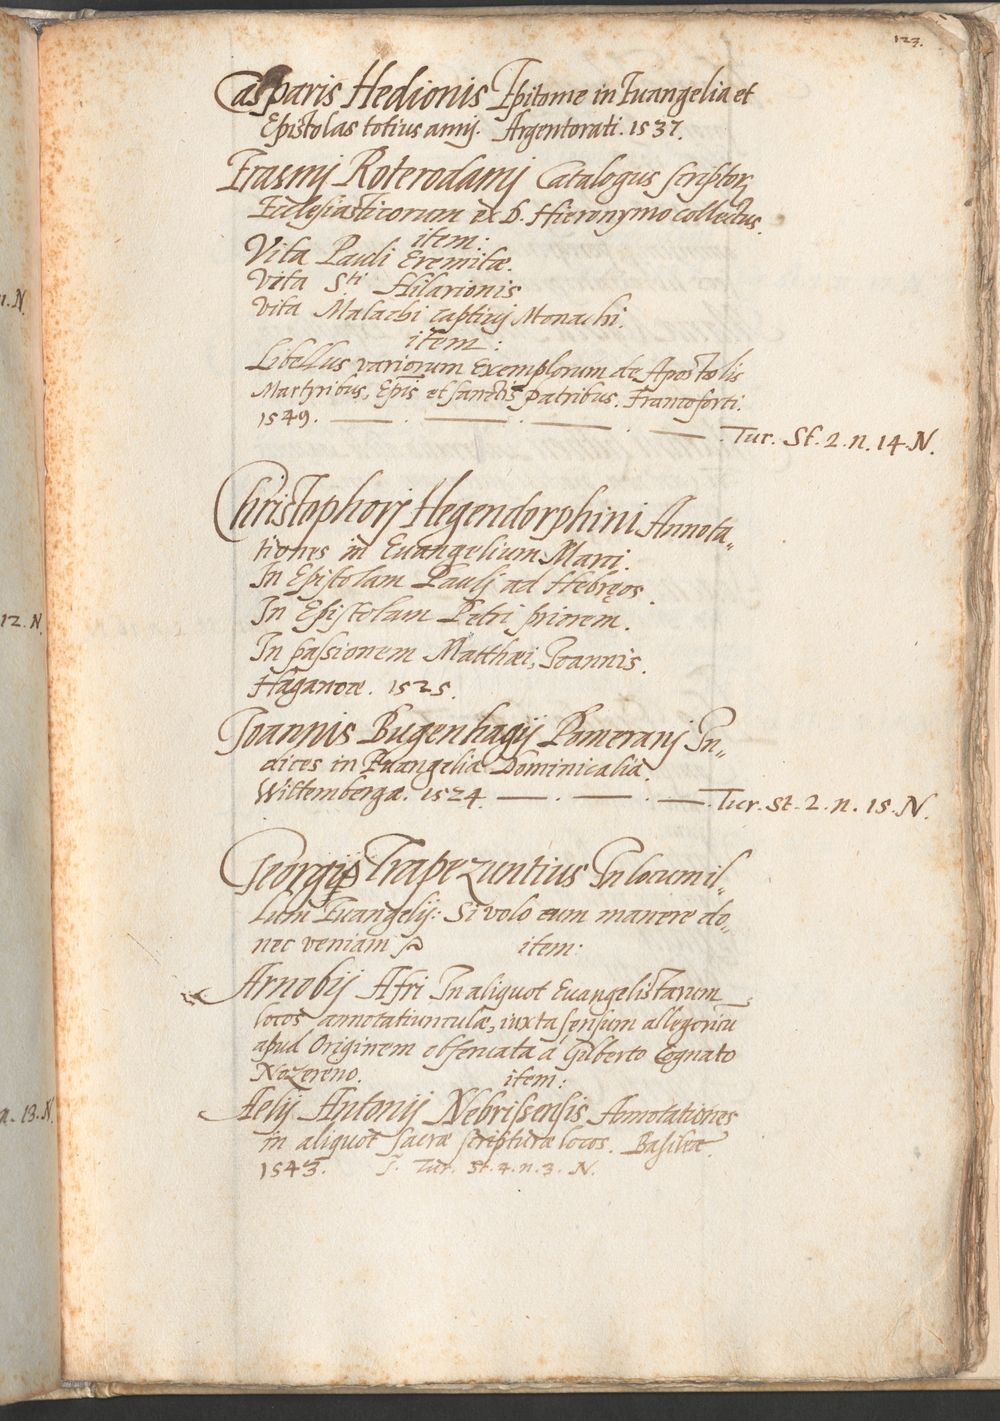 123.
Casparis Hedionis Epitome in Euangelia et
Epistolas totius annj. Argentorati. 1537.
Erasmj Roterodamj Catalogus scriptor.
Ecclesiasticorum ex D. Hieronymo collectus.
item:
Vita Pauli Eremitæ.
Vita Sti Hilarionis
Vita Malachi captiuj Monachi.
item:
Libellus variorum Exemplorum de Apostolis
Martyribus, Epis et sanctis patribus. Francoforti.
1549. — . — . — . — . Tur. St. 2. n. 14. N.
Christophorj Hegendorphini Annota„
tiones in Euangelium Marci.
In Epistolam Paulj ad Hebręos.
In Epistolam Petri priorem.
In passionem Matthæi, Joannis.
Haganoæ. 1525.
Joannis Bugenhagij Pomeranj In„
dices in Euangelia Dominicalia.
Wittembergæ. 1524. — . — . — . Tur. St. 2. n. 15. N.
Georgij Trapezuntius In locum il„
lum Euangelij: Si volo eum manere do„
nec veniam item:
Arnobij Afri In aliquot Euangelistarum
locos annotatiunculæ, iuxta sensum allegoricu
apud Originem obseruata à Gilberto Cognato
Nozereno. item:
Aelij Antonij Nebrissensis Annotationes
in aliquot sacræ scripturæ locos. Basileæ.
1543. S. Tur. St. 4. n. 3. N.
n. N.
12. N.
n. 13. N.